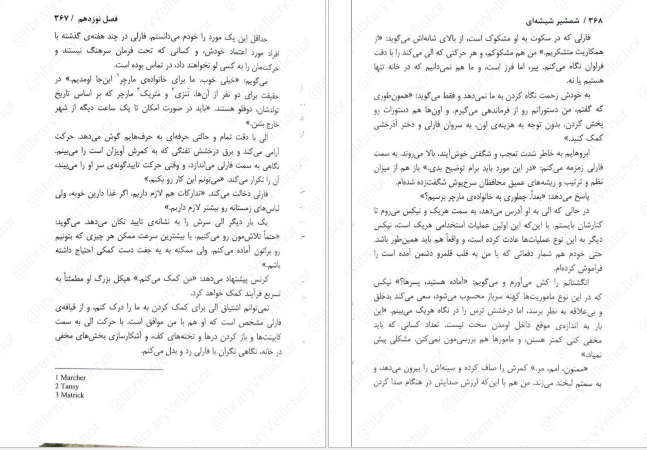 فصل نوزدهم / ۳۶۷
حداقل این یک مورد را خودم می‌دانستم. فارلی در چند هفته‌ی گذشته با
افراد مورد اعتماد خودش، و کسانی که تحت فرمان سرهنگ نیستند و
حرکتمان را به کسی لو نخواهند داد، در تماس بوده است.
می‌گویم: «خیلی خوب. ما برای خانواده‌ی مارچر¹ این‌جا اومدیم.» در
حقیقت برای دو نفر از آن‌ها. تَنزی² و مَتریک³ مارچر که بر اساس تاریخ
تولدشان، دوقلو هستند. «باید در صورت امکان تا یک ساعت دیگه از شهر
خارج بشن.»
الی با دقت تمام و حالتی حرفه‌ای به حرف‌هایم گوش می‌دهد. حرکت
آرامی می‌کند و برق درخشش تفنگی که به کمرش آویزان است را می‌بینم.
نگاهی به سمت فارلی می‌اندازد، و وقتی حرکت تاییدگونه‌ی سر او را می‌بیند،
آن را تکرار می‌کند. «می‌تونم این کار رو بکنم.»
فارلی دخالت می‌کند. «تدارکات هم لازم داریم. اگر غذا دارین خوبه، ولی
لباس‌های زمستانه رو بیشتر لازم داریم.»
یک بار دیگر الی سرش را به نشانه‌ی تایید تکان می‌دهد. می‌گوید:
«حتماً تلاش‌مون رو می‌کنیم. با بیشترین سرعت ممکن هر چیزی که بتونیم
رو براتون آماده می‌کنم. ولی ممکنه به یه جفت دست کمکی احتیاج داشته
باشم.»
کرنس پیشنهاد می‌دهد: «من کمک می‌کنم.» هیکل بزرگ او مطمئناً به
تسریع فرآیند کمک خواهد کرد.
نمی‌توانم اشتیاق الی برای کمک کردن به ما را درک کنم، و از قیافه‌ی
فارلی مشخص است که او هم با من موافق است. با حرکت الی به سمت
کابینت‌ها و باز کردن درها و تخته‌های کف، و آشکارسازی بخش‌های مخفی
در خانه، نگاهی نگران با فارلی رد و بدل می‌کنم.
1 Marcher
2 Tansy
3 Matrick
۳۶۸ / شمشیر شیشه‌ای
فارلی که در سکوت به او مشکوک است، از بالای شانه‌اش می‌گوید: «از
همکاریت متشکریم.» من هم مشکوکم، و هر حرکتی که الی می‌کند را با دقت
فراوان نگاه می‌کنم. پیر، اما فرز است، و ما هم نمی‌دانیم که در خانه تنها
هستیم یا نه.
به خودش زحمت نگاه کردن به ما نمی‌دهد و فقط می‌گوید: «همون‌طوری
که گفتم، من دستوراتم رو از فرماندهی می‌گیرم. و اون‌ها هم دستورات رو
پخش کردن. بدون توجه به هزینه‌ی اون، به سروان فارلی و دختر آذرخشی
کمک کنید.»
ابروهایم به خاطر شدت تعجب و شگفتی خوش‌آیند، بالا می‌روند. به سمت
فارلی زمزمه می‌کنم: «در این مورد باید برام توضیح بدی.» باز هم از میزان
نظم و ترتیب و ریشه‌های عمیق محافظان سرخ‌پوش شگفت‌زده شده‌ام.
پاسخ می‌دهد: «بعداً. چطوری به خانواده‌ی مارچر برسیم؟»
در حالی که الی به او آدرس می‌دهد، به سمت هریک و نیکس می‌روم تا
کنارشان بایستم. با این‌که این اولین عملیات استخدامی هریک است، نیکس
دیگر به این نوع عملیات‌ها عادت کرده است، و واقعاً هم باید همین‌طور باشد.
حتی خودم هم شمار دفعاتی که با من به قلب قلمرو دشمن آمده است را
فراموش کرده‌ام.
انگشتانم را کش می‌آورم و می‌گویم: «آماده هستید، پسرها؟» نیکس
که در این نوع ماموریت‌ها کهنه سرباز محسوب می‌شود، سعی می‌کند بدخلق
و بی‌علاقه به نظر برسد، اما درخشش ترس را در نگاه هریک می‌بینم. «این
بار به اندازه‌ی موقع داخل اومدن سخت نیست. تعداد کسانی که باید
مخفی کنی کمتر هستن، و مامورها هم بررسی‌مون نمی‌کنن. مشکلی پیش
نمیاد.»
«ممنون، امم، مر.» کمرش را صاف کرده و سینه‌اش را بیرون می‌دهد، و
به سمتم لبخند می‌زند. من هم با این‌که لرزش صدایش در هنگام صدا کردن